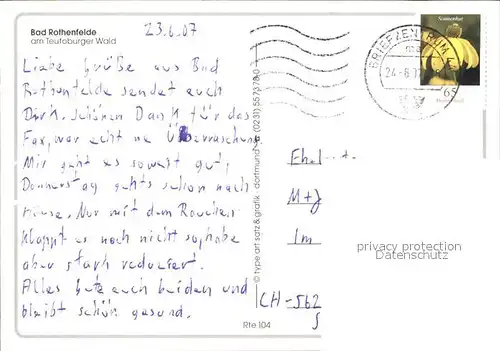 Bad Rothenfelde
am Teutoburger Wald
23.6.07
Liebe Grüße aus Bad
Rothenfelde sendet euch
Dirk. Schönen Dank für das
Fax, war echt ne Überraschung
Mir geht es soweit gut,
Donnerstag gehts schon nach
Hause. Nur mit dem Rauchen
klappt es noch nicht so, habe
aber stark reduziert.
Alles gute euch beiden und
bleibt schön gesund.
Rte 104
© type art satz & grafik · dortmund · (0231) 557378-0
BRIEFZENTRUM 4
24-6.0
Sonnenhut
65
M+J
Im
CH-562
privacy protection
Datenschutz